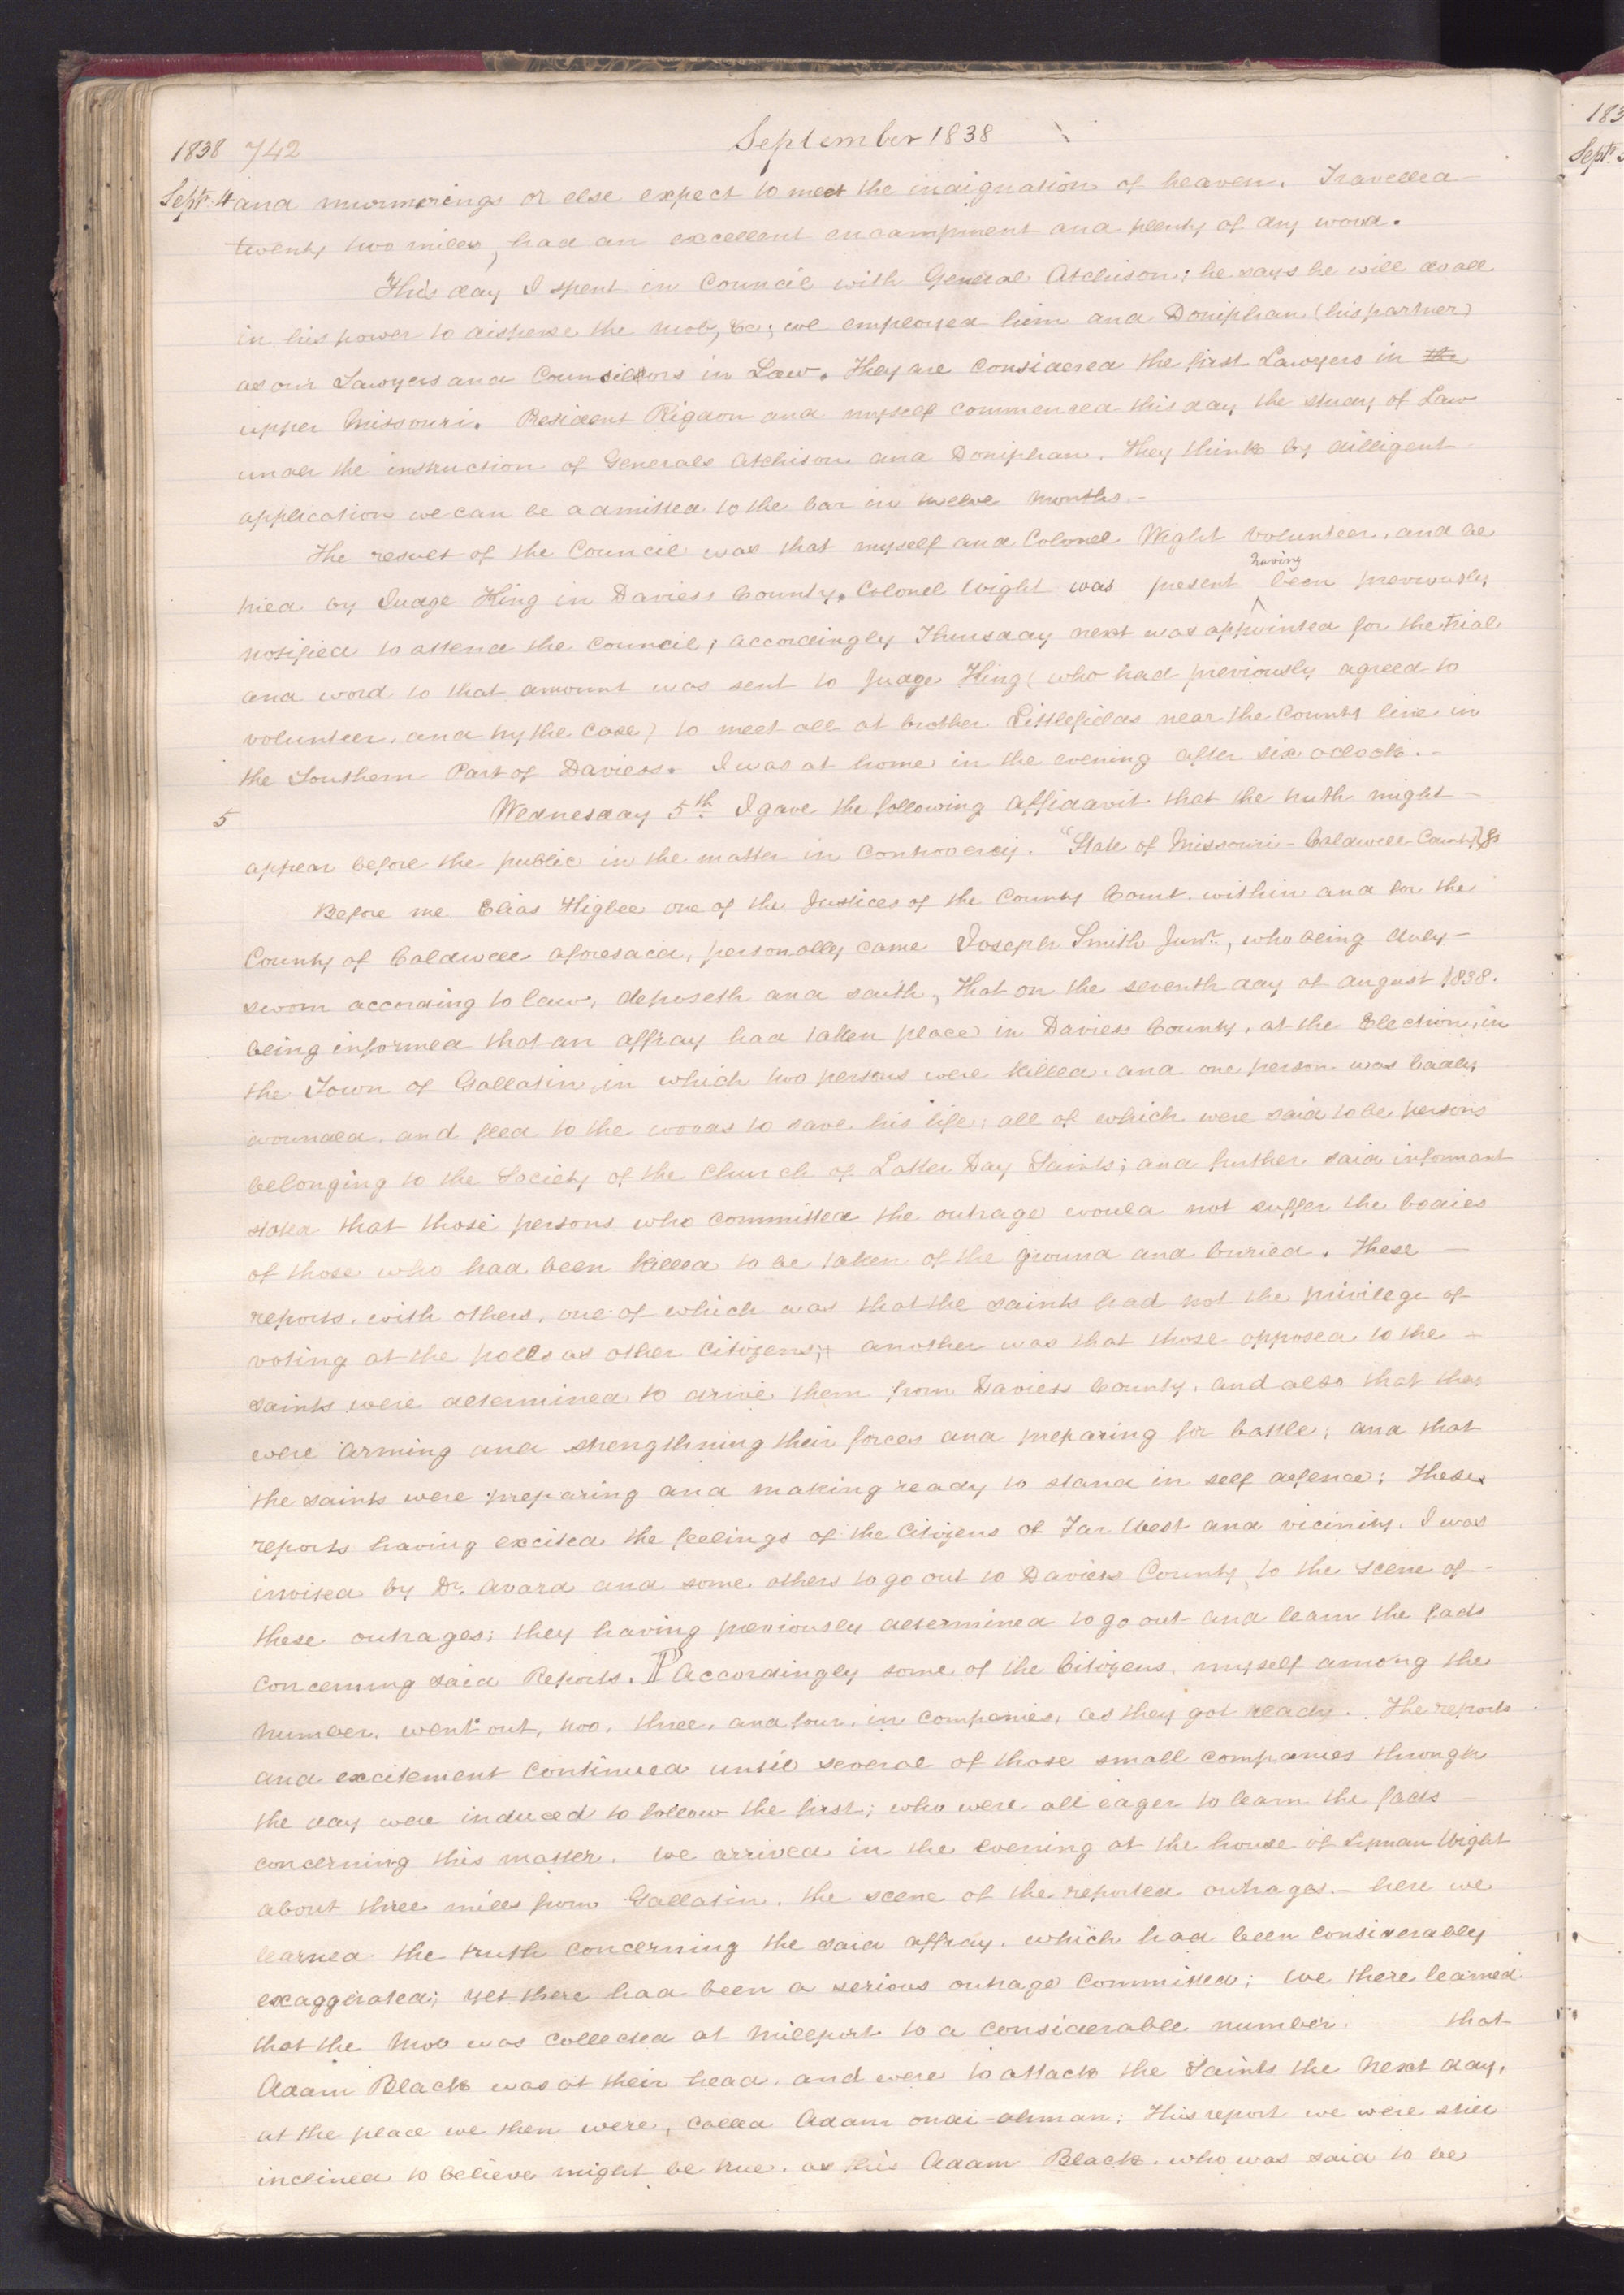 September 1838
1838 742
Sept. 4 and murmerings or else expect to meet the indignation of heaven. Travelled
twenty two miles, had an excellent encampment and plenty of dry wood.
This day I spent in Council with General Atchison; he says he will do all
in his power to disperse the mob, &c; we employed him and Doniphan (his partner)
as our Lawyers and Counsellors in Law. They are considered the first Lawyers in the
upper Missouri. President Rigdon and myself commenced this day the study of Law
under the instruction of Generals Atchison and Doniphan. They think by dilligent
application we can be admitted to the bar in twelve months.-
The result of the Council was that myself and Colonel Wight volunteer, and be
having
tried by Judge King in Daviess County. Colonel Wight was present been previously
notified to attend the Council; accordingly Thursday next was appointed for the trial
and word to that amount was sent to Judge King (who had previously agreed to
volunteer, and try the case) to meet all at brother Littlefields near the County line in
the Southern Part of Daviess. I was at home in the evening after six oclock.-
5 Wednesday 5th I gave the following affidavit that the truth might
appear before the public in the matter in controversy. "State of Missouri - Caldwell County} Ss
Before me Elias Higbee one of the Justices of the County Court within and for the
County of Caldwell aforesaid, personally came Joseph Smith Junr., who being duly
sworn according to law, deposeth and saith, that on the seventh day of august 1838.
being informed that an affray had taken place in Daviess County, at the Election, in
the Town of Gallatin, in which two persons were killed, and one person was badly
wounded, and fled to the woods to save his life; all of which were said to be persons
belonging to the Society of the Church of Latter Day Saints; and further said informant
stated that those persons who committed the outrage would not suffer the bodies
of those who had been killed to be taken of the ground and buried. These
reports, with others, one of which was that the saints had not the privilege of
voting at the polls as other Citizens; another was that those opposed to the
saints were determined to drive them from Daviess County, and also that they
were arming and strengthning their forces and preparing for battle; and that
the saints were preparing and making ready to stand in self defence; these
reports having excited the feelings of the Citizens of Far West and vicinity. I was
invited by Dr. Avard and some others to go out to Daviess County, to the scene of
these outrages; they having previously determined to go out and learn the facts
concerning said Reports. ¶ accordingly some of the Citizens, myself among the
number, went out, two, three, and four, in companies, as they got ready. The reports
and excitement continued until several of those small companies through
the day were induced to follow the first; who were all eager to learn the facts
concerning this matter. We arrived in the evening at the house of Lyman Wight
about three miles from Gallatin, the scene of the reported outrages.- here we
learned the truth concerning the said affray, which had been considerably
exaggerated; yet there had been a serious outrage committed; We there learned
that the mob was collected at Millport to a considerable number. that
Adam Black was at their head, and were to attack the Saints the next day,
at the place we then were, called Adam ondi-ahman; this report we were still
inclined to believe might be true, as this Adam Black, who was said to be
183
Sept.